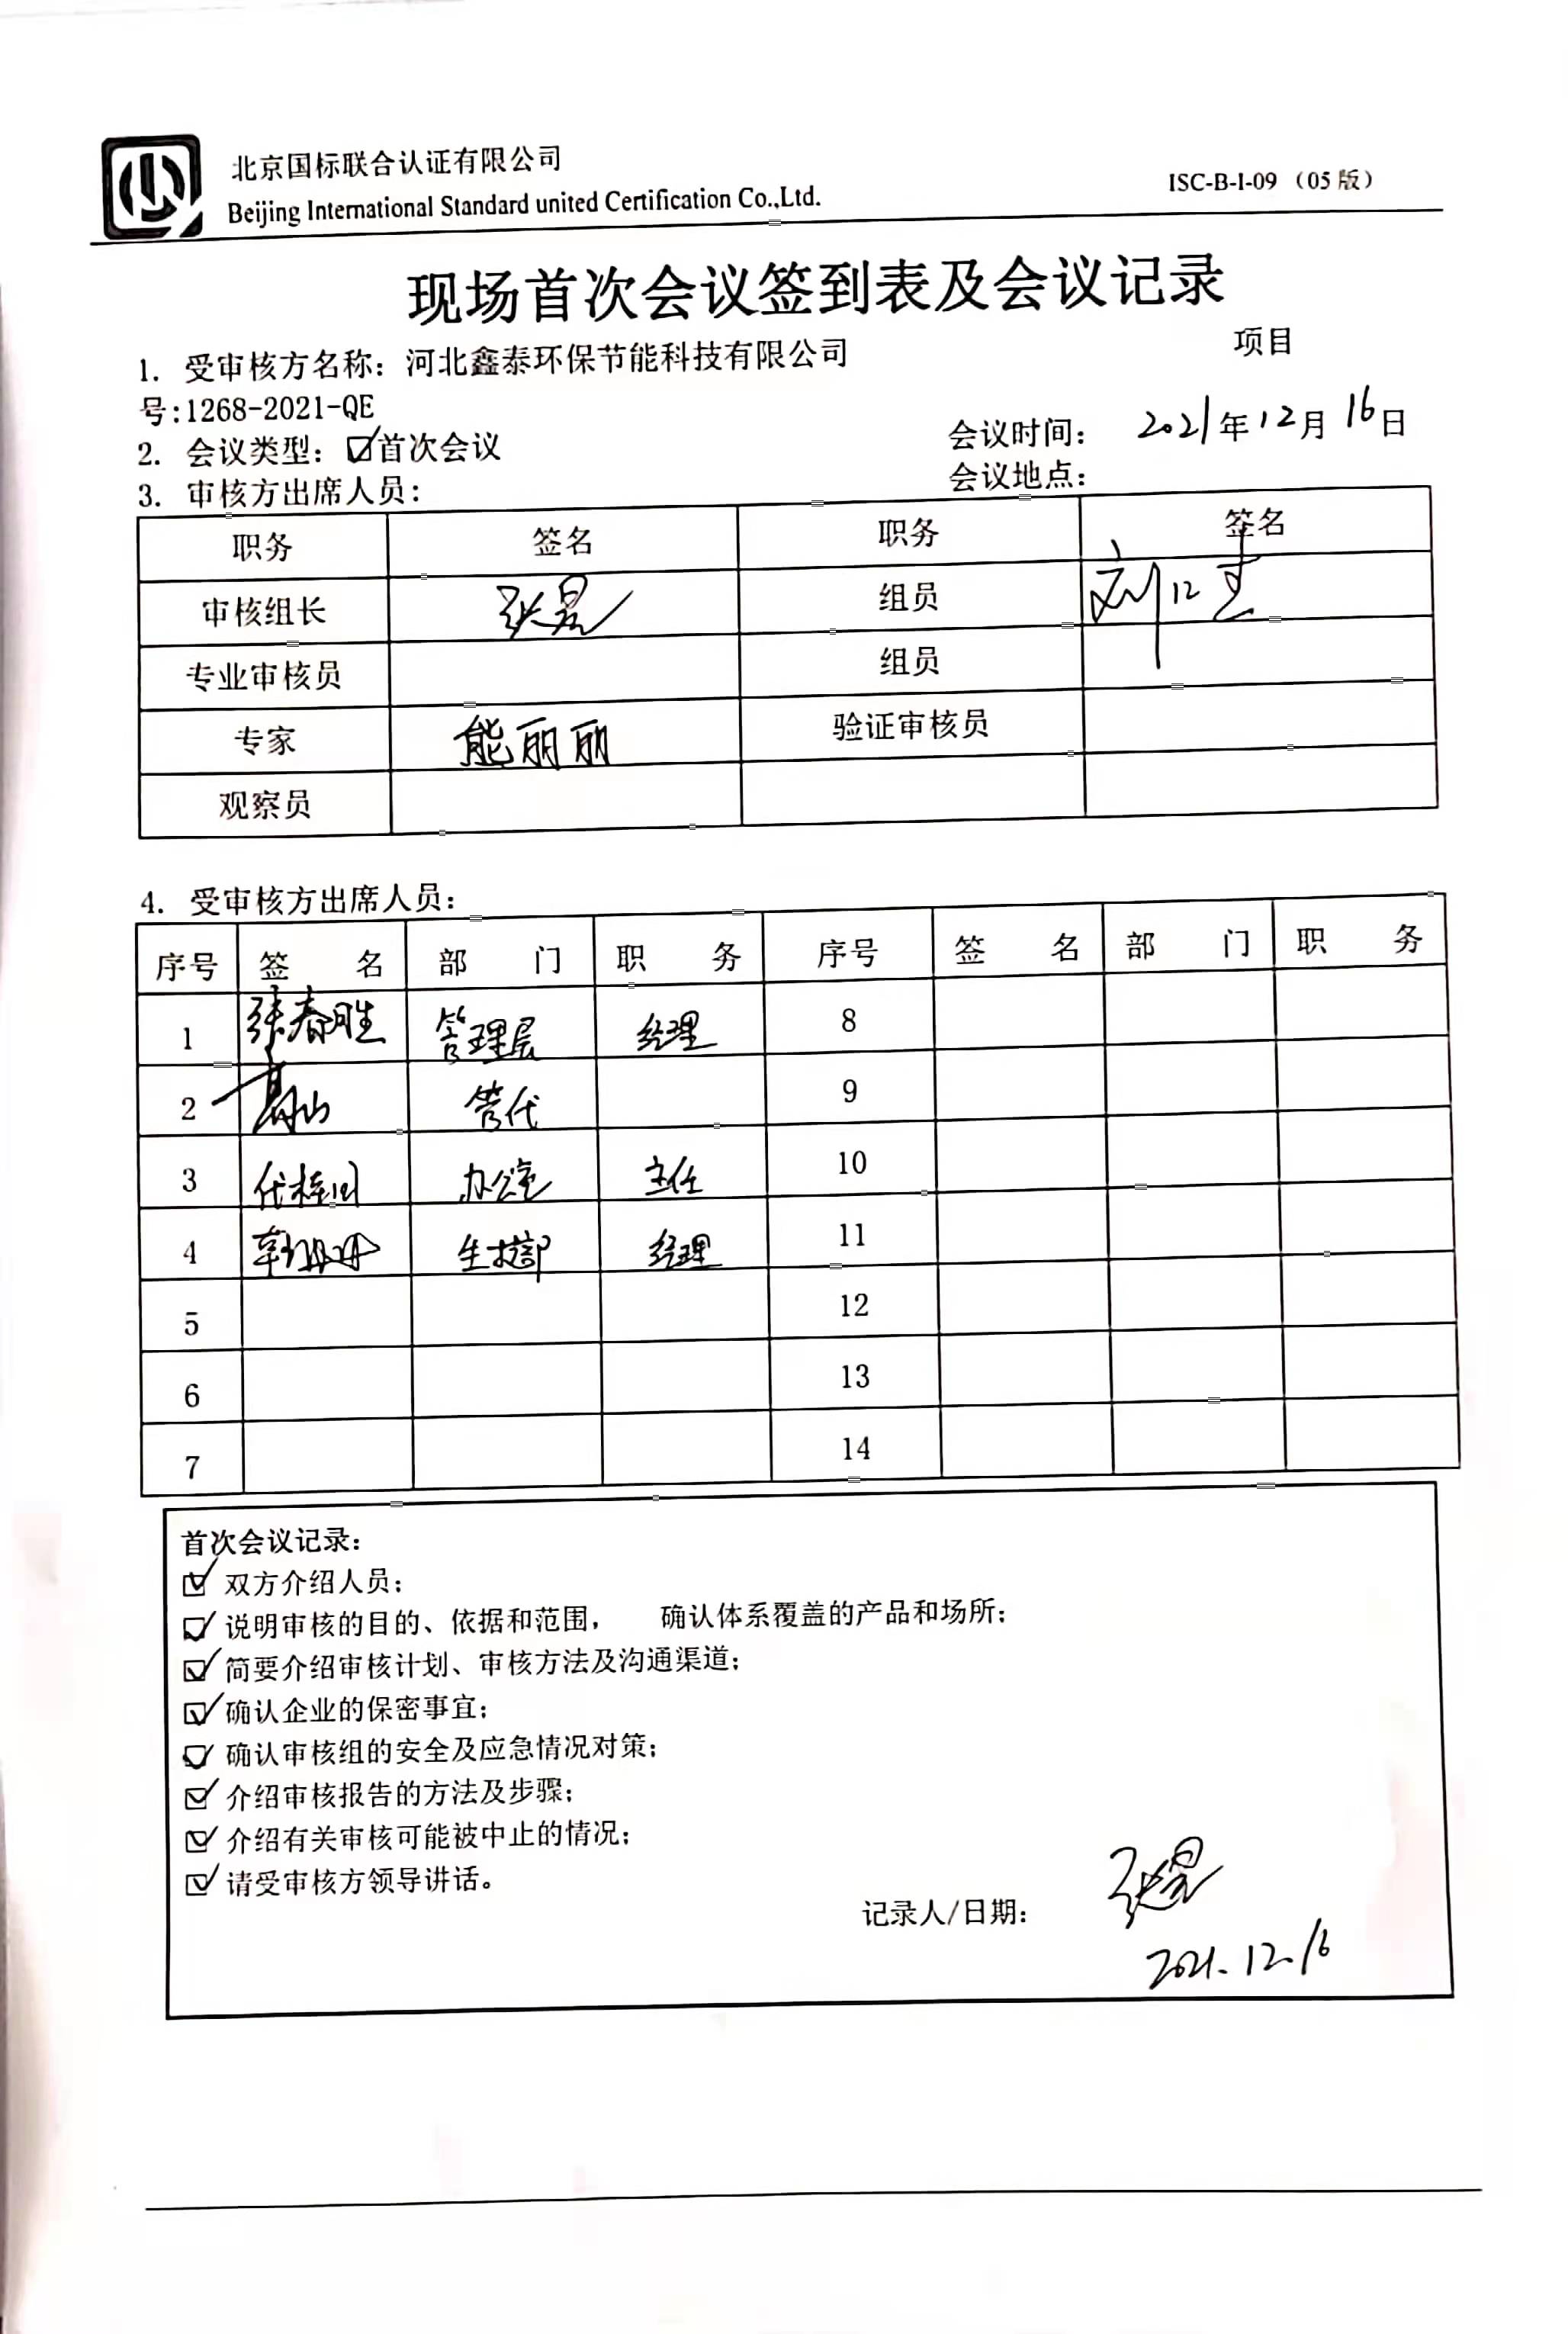 北京国标联合认证有限公司
Beijing International Standard united Certification Co.,Ltd.
ISC-B-I-09 （05 版）
现场首次会议签到表及会议记录
1. 受审核方名称：河北鑫泰环保节能科技有限公司 项目
号:1268-2021-QE
2. 会议类型：☑首次会议 会议时间： 2021年12月16日
3. 审核方出席人员： 会议地点：
职务 签名 职务 签名
审核组长 组员
专业审核员 组员
专家 熊丽丽 验证审核员
观察员
4. 受审核方出席人员：
序号 签 名 部 门 职 务 序号 签 名 部 门 职 务
1 张春胜 管理层 经理 8
2 管代 9
3 办公室 主任 10
4 生技部 经理 11
5 12
6 13
7 14
首次会议记录：
☑ 双方介绍人员；
☑ 说明审核的目的、依据和范围， 确认体系覆盖的产品和场所；
☑ 简要介绍审核计划、审核方法及沟通渠道；
☑ 确认企业的保密事宜；
☑ 确认审核组的安全及应急情况对策；
☑ 介绍审核报告的方法及步骤；
☑ 介绍有关审核可能被中止的情况；
☑ 请受审核方领导讲话。
记录人/日期：
2021.12.16